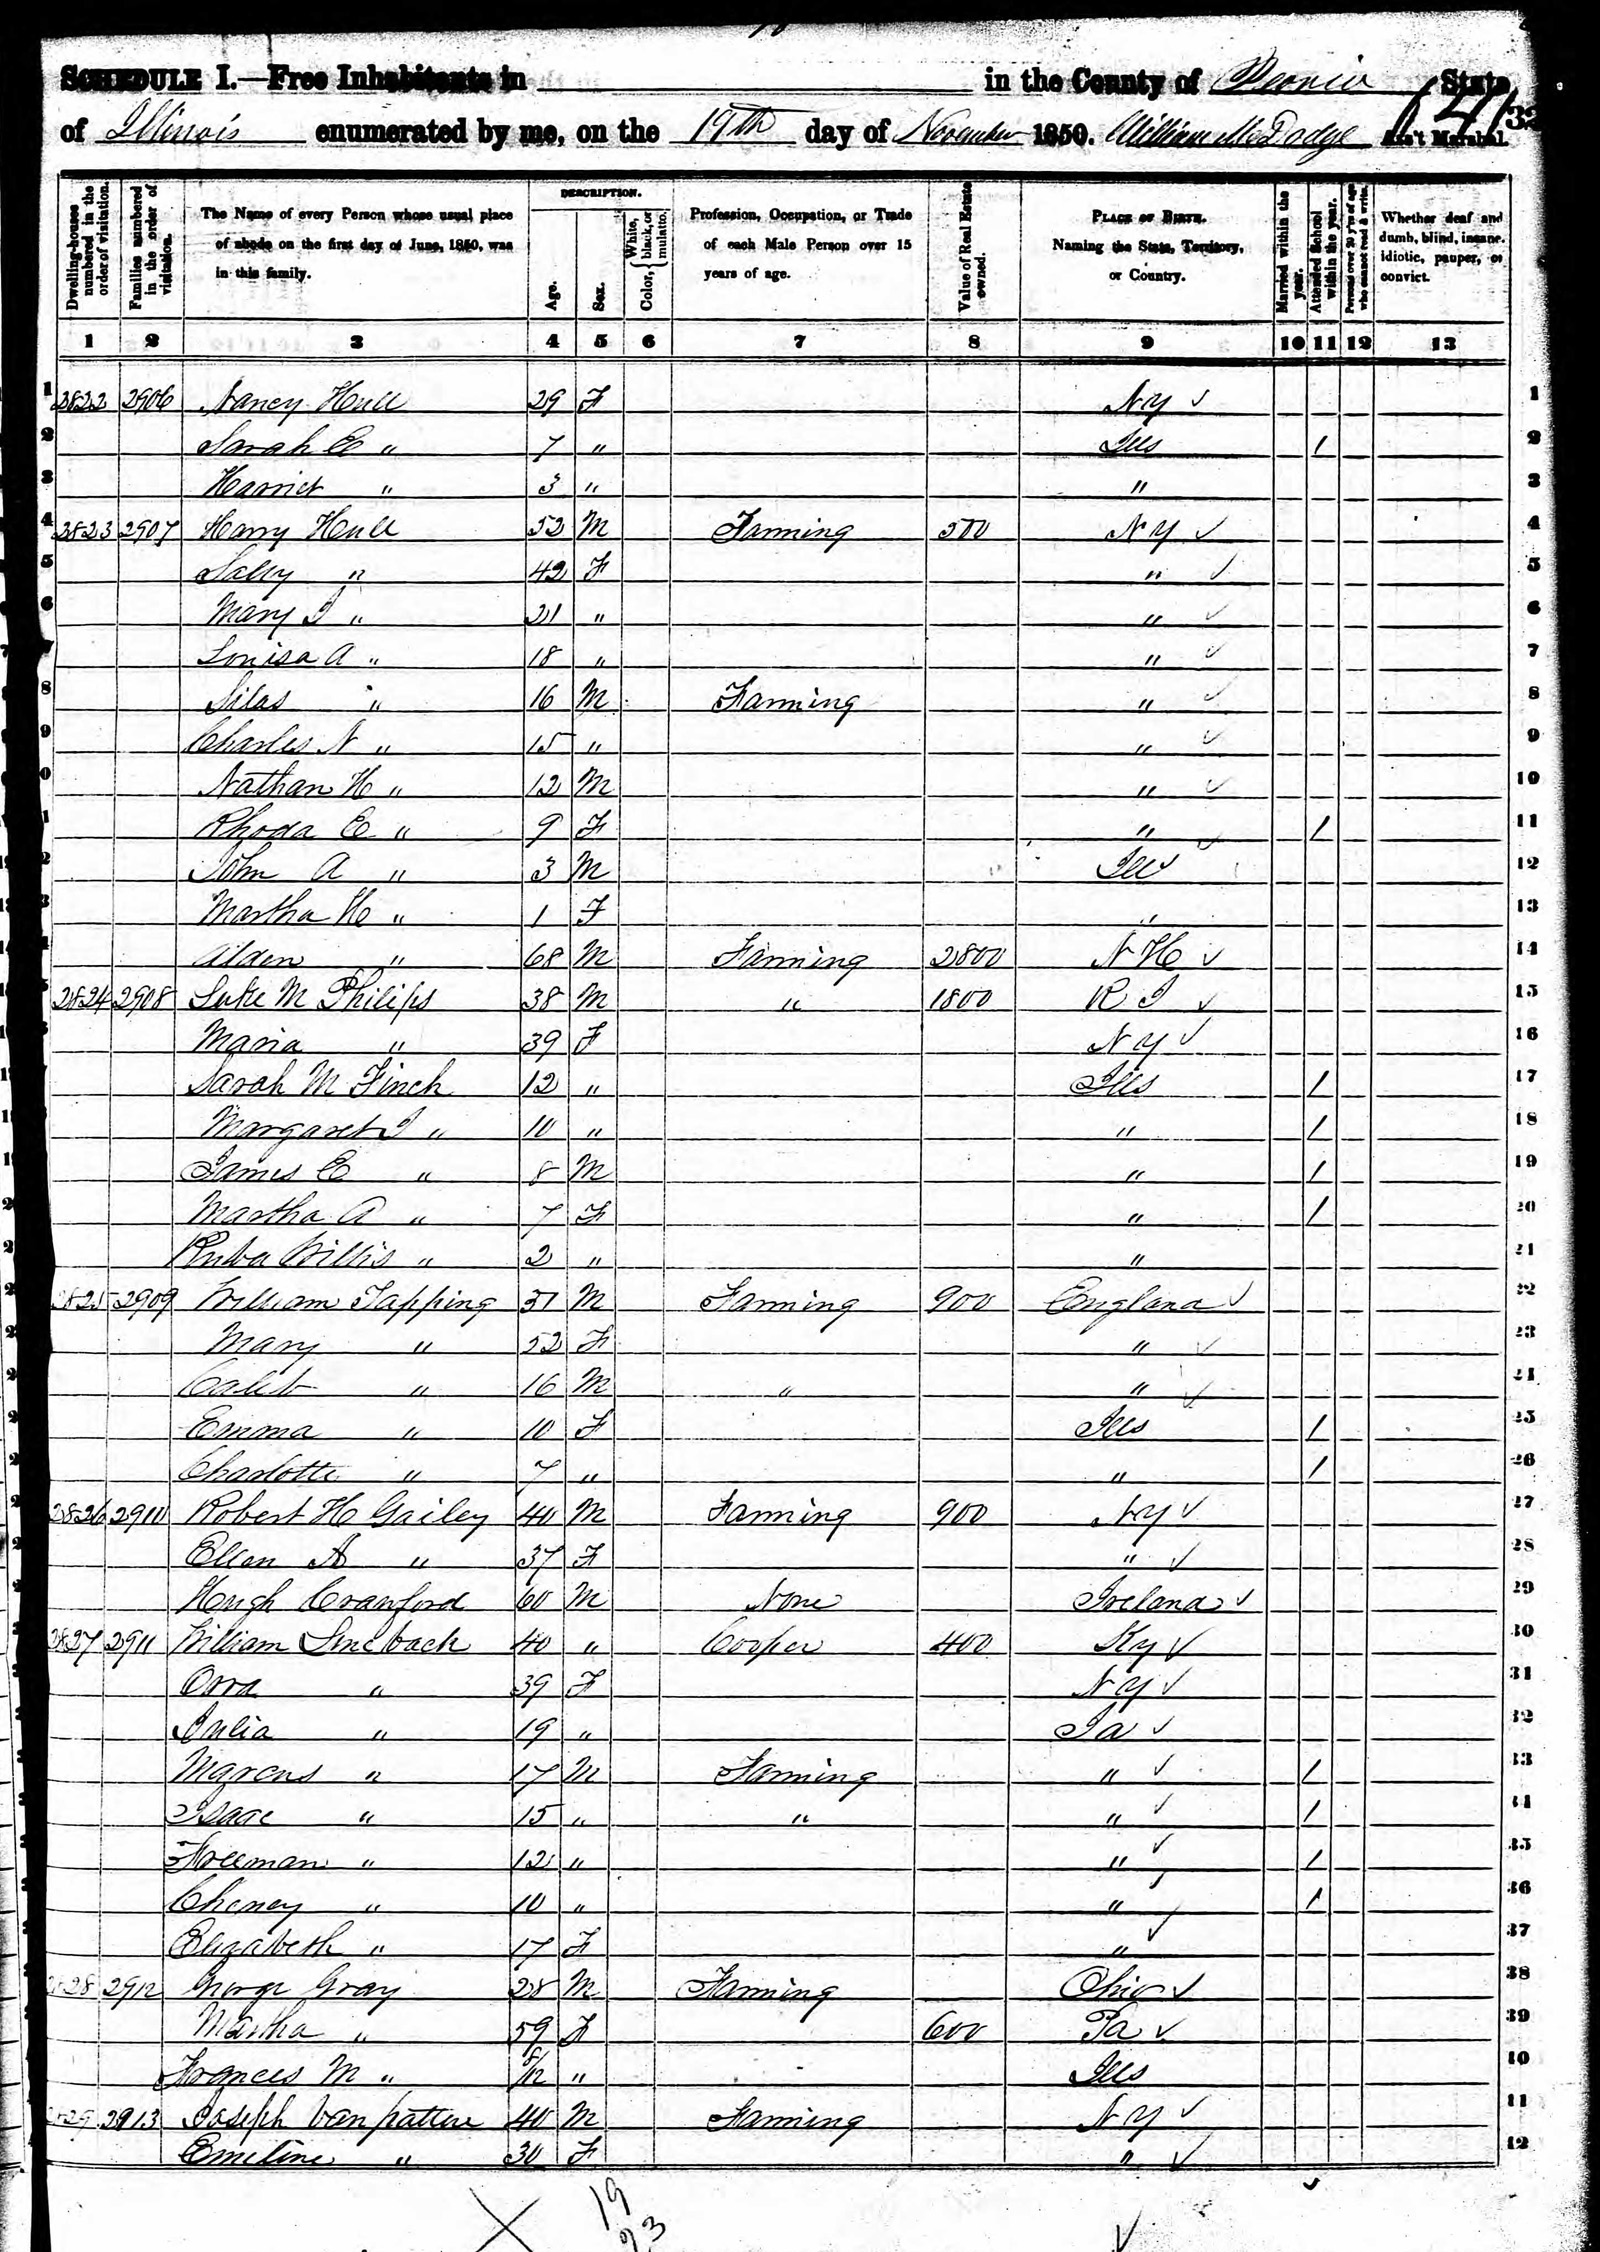 SCHEDULE I.—Free Inhabitants in in the County of Peoria State
of Illinois enumerated by me, on the 19th day of November 1850. William M Dodge Ass't Marshal.
Dwelling-houses numbered in the order of visitation.
Families numbered in the order of visitation.
The Name of every Person whose usual place of abode on the first day of June, 1850, was in this family.
DESCRIPTION.
Age.
Sex.
Color, White, black, or mulatto.
Profession, Occupation, or Trade of each Male Person over 15 years of age.
Value of Real Estate owned.
PLACE OF BIRTH. Naming the State, Territory, or Country.
Married within the year.
Attended School within the year.
Persons over 20 y'rs of age who cannot read & write.
Whether deaf and dumb, blind, insane, idiotic, pauper, or convict.
1 2 3 4 5 6 7 8 9 10 11 12 13
1 2822 2906 Nancy Hull 29 F NY ✓ 1
2 Sarah E " 7 " Ills / 2
3 Harriet " 3 " " 3
4 2823 2907 Harry Hull 52 M Farming 500 NY ✓ 4
5 Sally " 42 F " ✓ 5
6 Mary J " 21 " " ✓ 6
7 Louisa A " 18 " " ✓ 7
8 Silas " 16 M Farming " ✓ 8
9 Charles N " 15 " " ✓ 9
Nathan H " 12 M " ✓ 10
Rhoda E " 9 F " ✓ / 11
John A " 3 M Ills 12
Martha H " 1 F " 13
Alden " 68 M Farming 2800 N H ✓ 14
2824 2908 Luke M Philips 38 M " 1800 R I ✓ 15
Maria " 39 F NY ✓ 16
Sarah M Finch 12 " Ills / 17
Margaret J " 10 " " / 18
James E " 8 M " / 19
Martha A " 7 F " / 20
Willis " 2 " " 21
2825 2909 William Tapping 51 M Farming 900 England ✓ 22
Mary " 52 F " ✓ 23
Caleb " 16 M " " ✓ 24
Emma " 10 F Ills / 25
Charlotte " 7 " " / 26
2826 2910 Robert H Gailey 40 M Farming 900 NY ✓ 27
Ellen A " 37 F " ✓ 28
Hugh Crawford 60 M None Ireland ✓ 29
2827 2911 William Lineback 40 " Cooper 400 Ky ✓ 30
Orra " 39 F NY ✓ 31
Julia " 19 " Ia ✓ 32
Marcus " 17 M Farming " ✓ / 33
Isaac " 15 " " " ✓ / 34
Freeman " 12 " " ✓ / 35
Cheney " 10 " " ✓ / 36
Elizabeth " 17 F " ✓ 37
2828 2912 George Gray 28 M Farming Ohio ✓ 38
Martha " 59 F 600 Pa ✓ 39
Frances M " 8/12 " Ills 40
2829 2913 Joseph Vanpatten 40 M Farming NY ✓ 41
Emeline " 30 F " ✓ 42
19
23